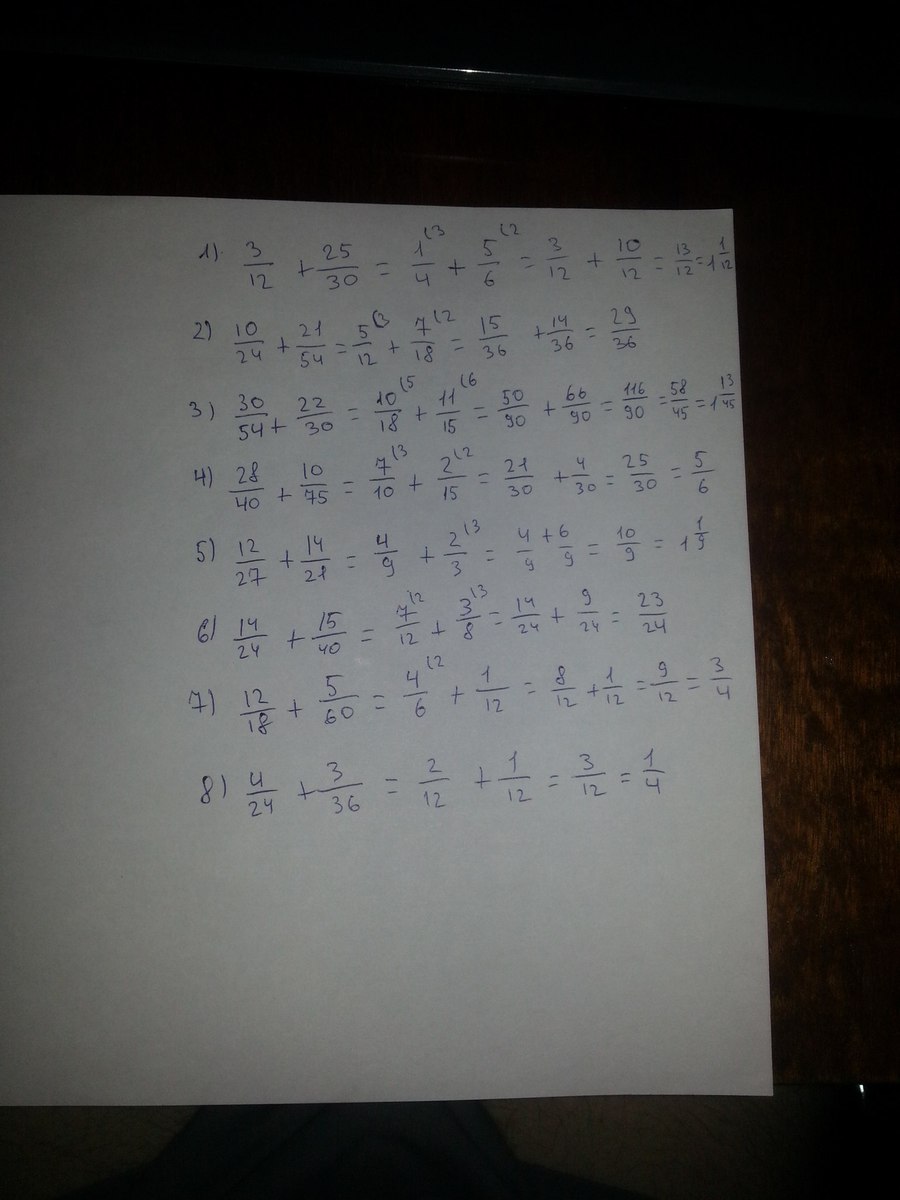 1) 3/12 + 25/30 = 1/4 (3 + 5/6 (2 = 3/12 + 10/12 = 13/12 = 1 1/12
2) 10/24 + 21/54 = 5/12 (3 + 7/18 (2 = 15/36 + 14/36 = 29/36
3) 30/54 + 22/30 = 10/18 (5 + 11/15 (6 = 50/90 + 66/90 = 116/90 = 58/45 = 1 13/45
4) 28/40 + 10/75 = 7/10 (3 + 2/15 (2 = 21/30 + 4/30 = 25/30 = 5/6
5) 12/27 + 14/21 = 4/9 + 2/3 (3 = 4/9 + 6/9 = 10/9 = 1 1/9
6) 14/24 + 15/40 = 7/12 (2 + 3/8 (3 = 14/24 + 9/24 = 23/24
7) 12/18 + 5/60 = 4/6 (2 + 1/12 = 8/12 + 1/12 = 9/12 = 3/4
8) 4/24 + 3/36 = 2/12 + 1/12 = 3/12 = 1/4